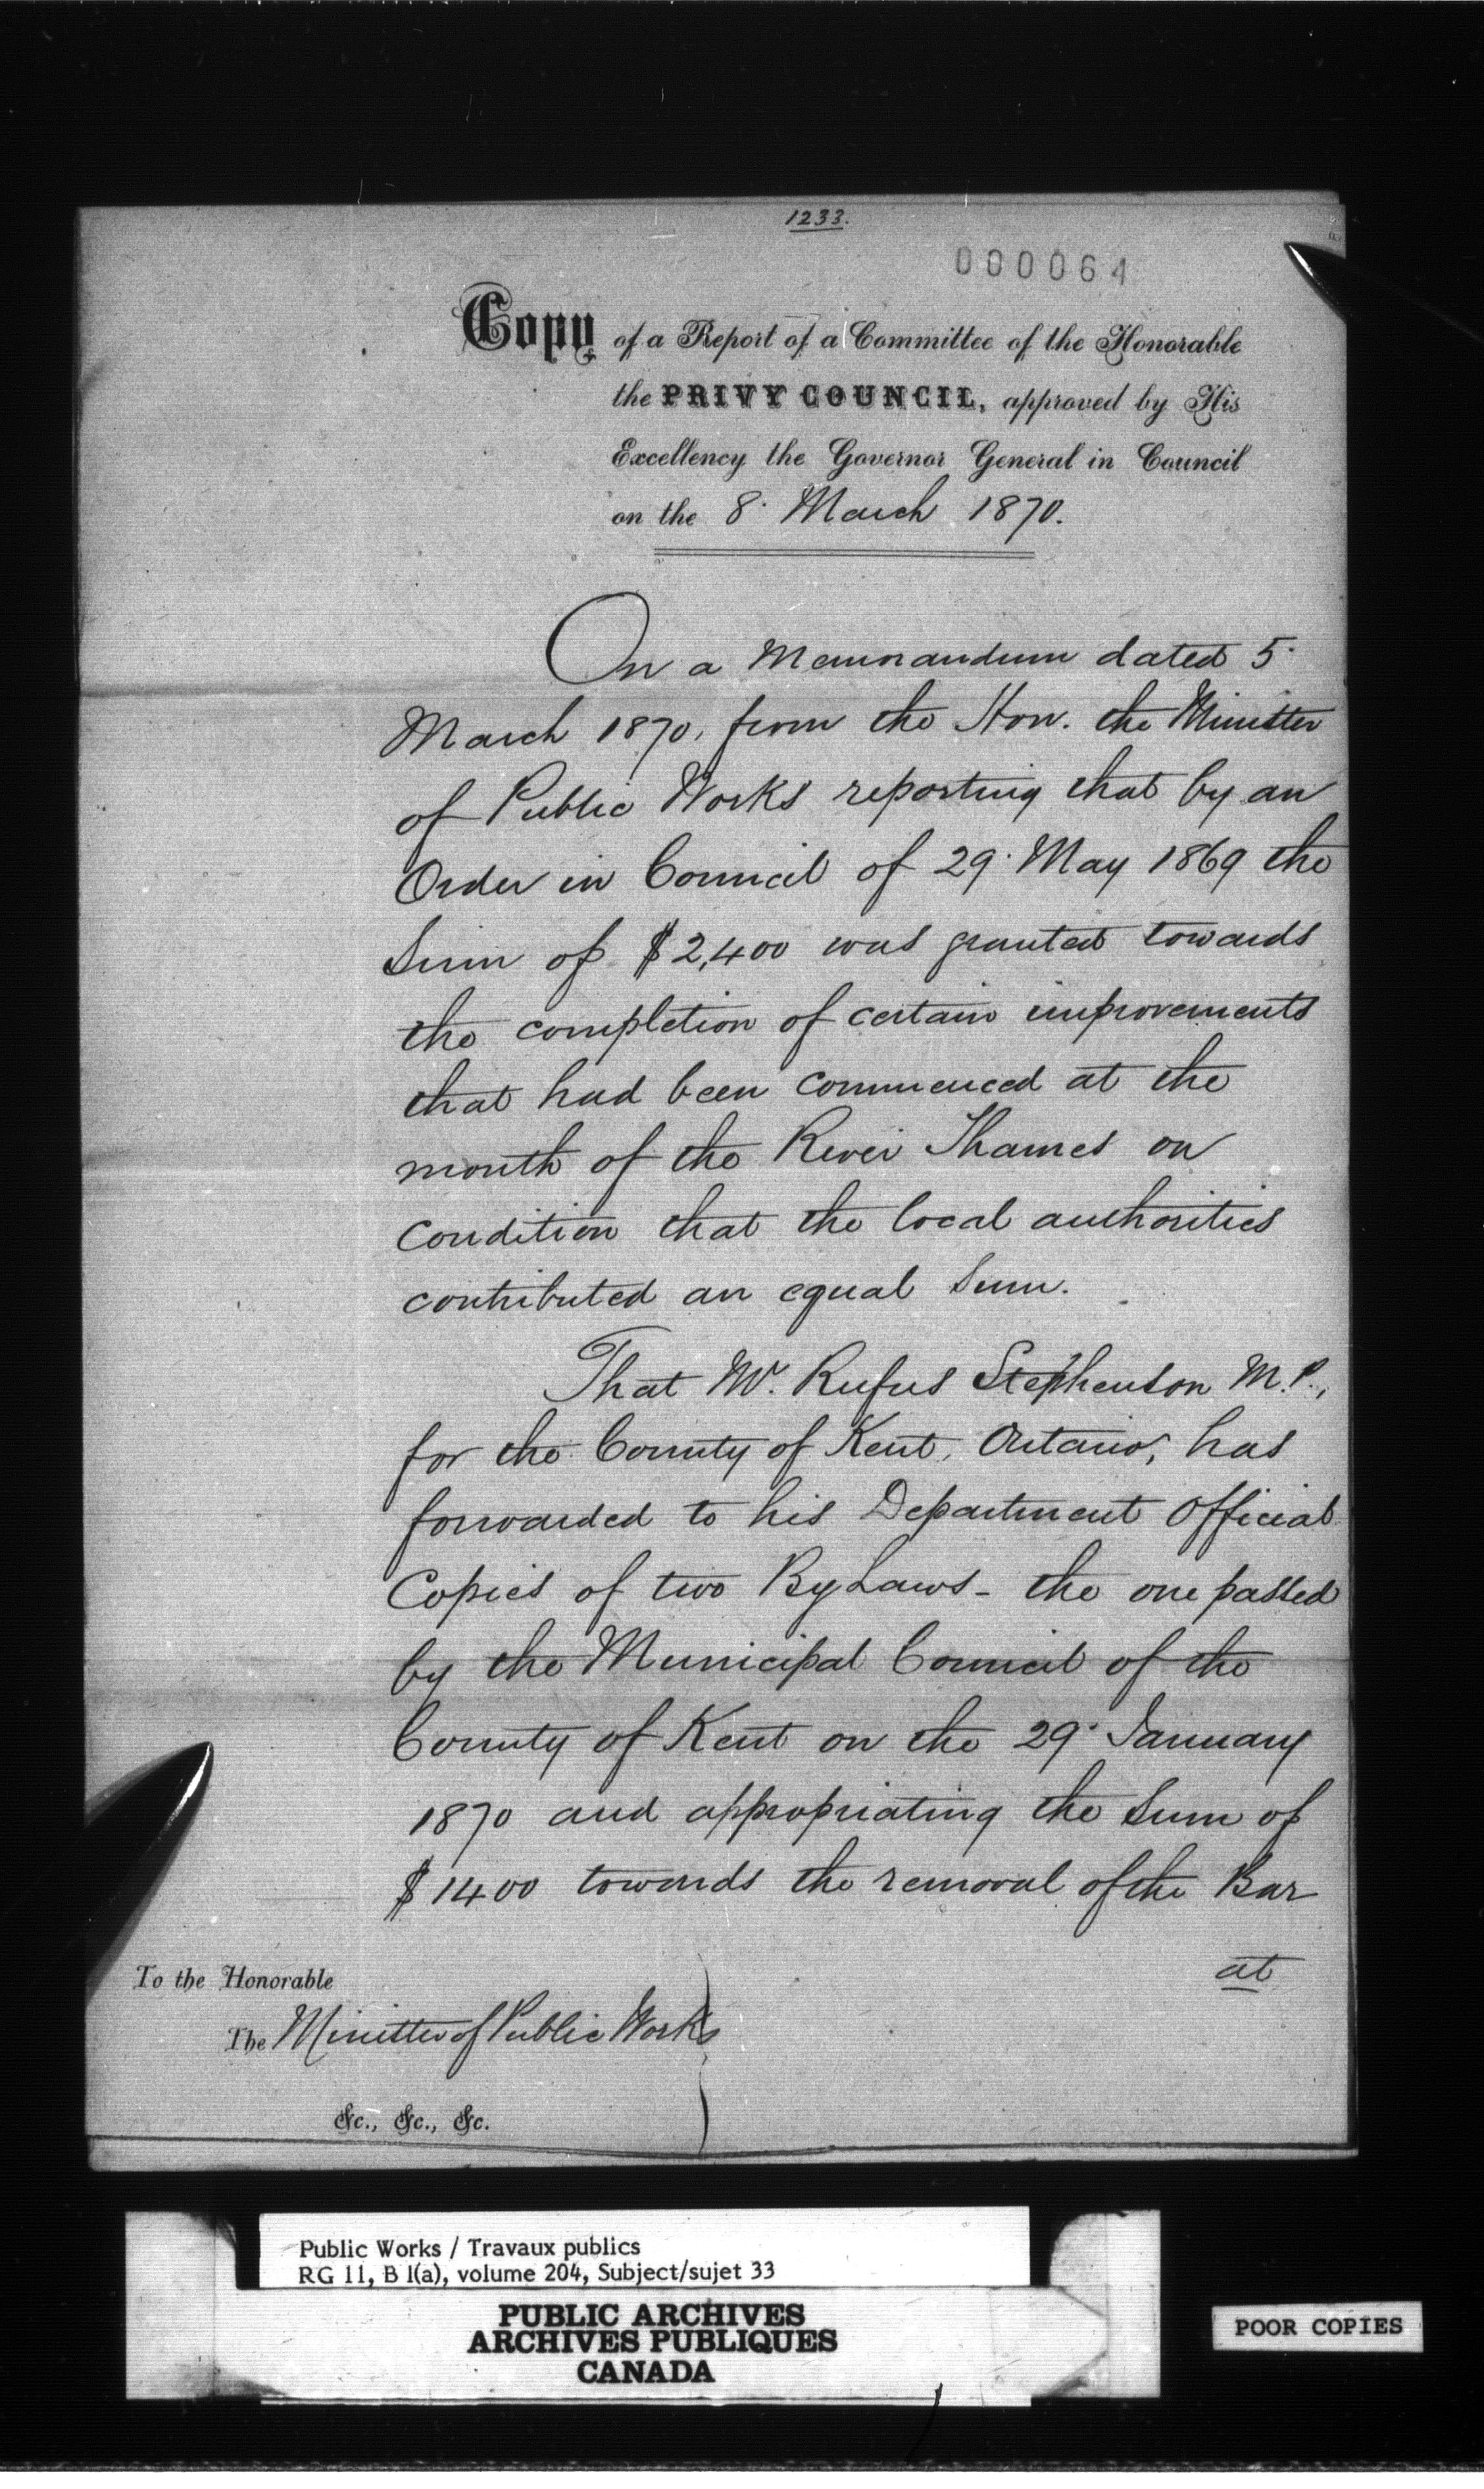 1233.
000064
Copy of a Report of a Committee of the Honorable
the PRIVY COUNCIL, approved by His
Excellency the Governor General in Council
on the 8. March 1870.
On a Memorandum dated 5.
March 1870, from the Hon. the Minister
of Public Works reporting that by an
Order in Council of 29. May 1869 the
Sum of $2,400 was granted towards
the completion of certain improvements
that had been commenced at the
mouth of the River Thames on
condition that the local authorities
contributed an equal Sum.
That Mr. Rufus Stephenson M.P.,
for the County of Kent, Ontario, has
forwarded to his Department Official
Copies of two By Laws - the one passed
by the Municipal Council of the
County of Kent on the 29. January
1870 and appropriating the Sum of
$1400 towards the removal of the Bar
at
To the Honorable
The Minister of Public Works
&c., &c., &c.
Public Works / Travaux publics
RG 11, B 1(a), volume 204, Subject/sujet 33
PUBLIC ARCHIVES
ARCHIVES PUBLIQUES
CANADA
POOR COPIES